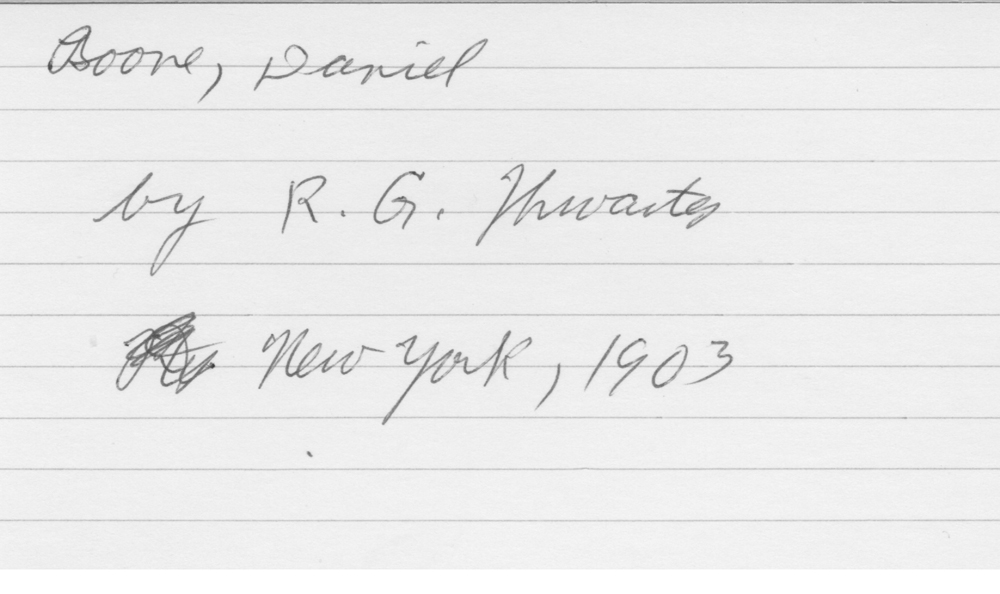 Boone, Daniel
by R. G. Thwaites
New York, 1903